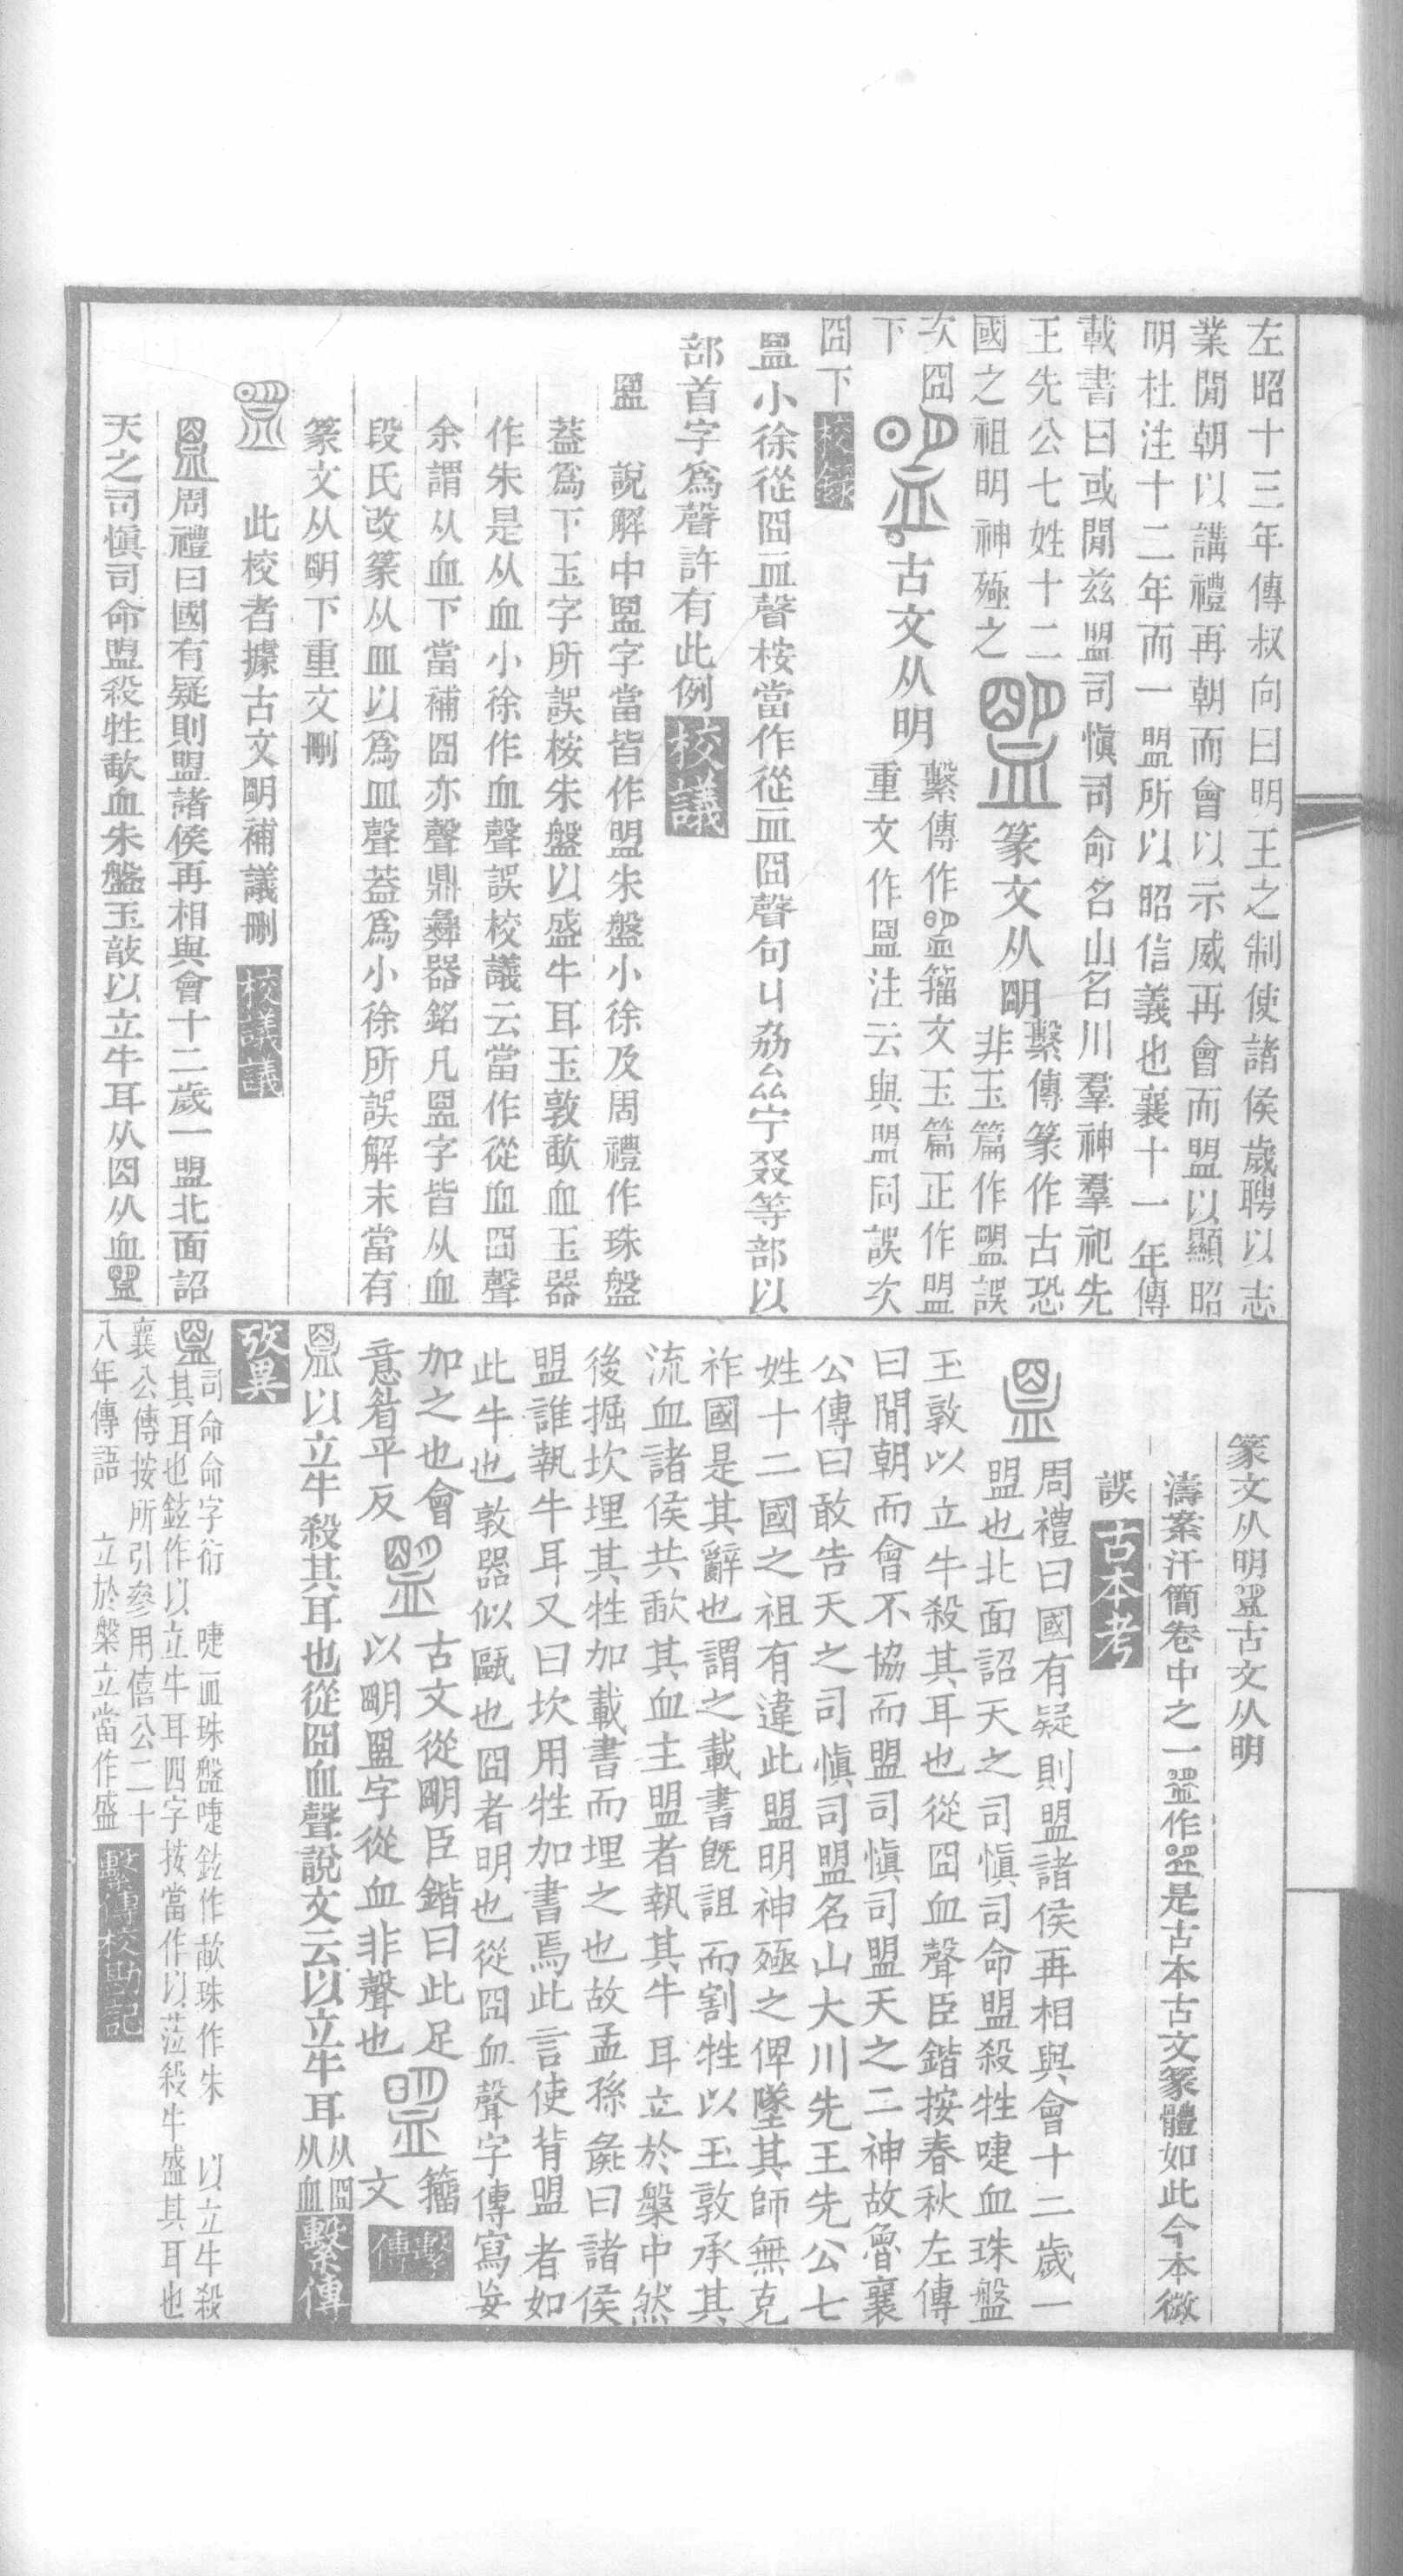 左昭十三年傳叔向曰明王之制使諸侯歲聘以志
業閒朝以講禮再朝而會以示威再會而盟以顯昭
明杜注十二年而一盟所以昭信義也襄十一年傳
載書曰或閒茲盟司愼司命名山名川羣神羣祀先
王先公七姓十二
國之祖明神殛之
篆文从朙
繫傳篆作古恐
非玉篇作盟誤
次囧
下
古文从明
繫傳作籀文玉篇正作盟
重文作盟注云與盟同誤次
囧下校錄
小徐從囧皿聲桉當作從皿囧聲句丩劦厽厸宁叕等部以
部首字爲聲許有此例校議
盟 說解中盟字當皆作盟朱盤小徐及周禮作珠盤
葢爲下玉字所誤桉朱盤以盛牛耳玉敦歃血玉器
作朱是从血小徐作血聲誤校議云當作從血囧聲
余謂从血下當補囧亦聲鼎彝器銘凡盟字皆从血
段氏改篆从皿以爲皿聲葢爲小徐所誤解末當有
篆文从朙下重文刪
此校者據古文朙補議刪 校議議
周禮曰國有疑則盟諸侯再相與會十二歲一盟北面詔
天之司愼司命盟殺牲歃血朱盤玉敦以立牛耳从囧从血
篆文从明古文从明
濤案汗簡卷中之一作是古本古文篆體如此今本微
誤古本考
周禮曰國有疑則盟諸侯再相與會十二歲一
盟也北面詔天之司愼司命盟殺牲啑血珠盤
玉敦以立牛殺其耳也從囧血聲臣鍇按春秋左傳
曰閒朝而會不協而盟司愼司盟天之二神故魯襄
公傳曰敢告天之司愼司盟名山大川先王先公七
姓十二國之祖有違此盟明神殛之俾墜其師無克
祚國是其辭也謂之載書旣詛而割牲以玉敦承其
流血諸侯共歃其血主盟者執其牛耳立於槃中然
後掘坎埋其牲加載書而埋之也故孟孫彘曰諸侯
盟誰執牛耳又曰坎用牲加書焉此言使背盟者如
此牛也敦器似甌也囧者明也從囧血聲字傳寫妄
加之也會
意眚平反
古文從朙臣鍇曰此足
以朙盟字從血非聲也
籀
文
繫傳
以立牛殺其耳也從囧血聲說文云以立牛耳从囧从血繫傳
攷異
司命命字衍 啑血珠盤啑鉉作歃珠作朱 以立牛殺
其耳也鉉作以立牛耳四字按當作以莅殺牛盛其耳也
襄公傳按所引參用僖公二十
八年傳語 立於槃立當作盛 繫傳校勘記